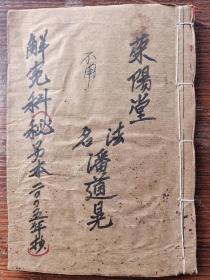 萊陽堂
法名潘道晃
不用
解冤科秘另本二00五年抄